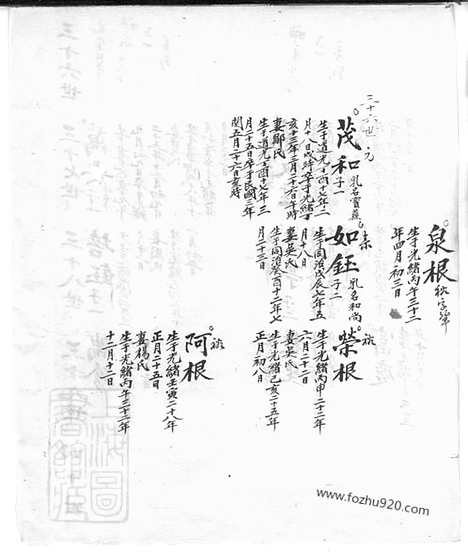 三十六世 元
茂和 子二 乳名寶燕
生于道光丁酉十七年二
月十八日戌時卒于光緒丁
亥十三年三月二十六日午時
妻鄭氏
生于道光丁酉十七年三
月二十五日卒于民國三年
閏五月二十六日亥時
泉根
生于光緒丙午三十二
年四月初三日
如鈺 子二 乳名和尚
生于同治戊辰七年五
月十八日
妻吳氏
生于同治癸酉十二年七
月二十三日
榮根
生于光緒丙申二十二年
六月二十二日
妻吳氏
生于光緒己亥二十五年
正月初八日
阿根
生于光緒壬寅二十八年
正月二十五日
妻楊氏
生于光緒丙午三十二年
十一月十二日
www.fozhu920.com